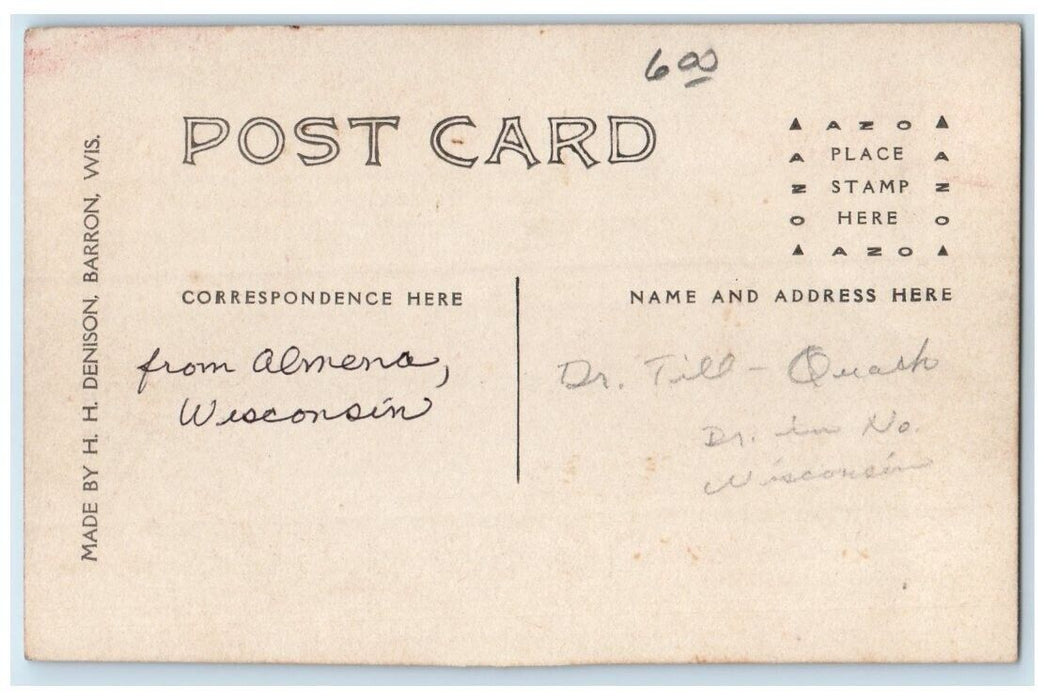 6 00
POST CARD
AZO
A PLACE A
Z STAMP Z
O HERE O
AZO
MADE BY H. H. DENISON, BARRON, WIS.
CORRESPONDENCE HERE
NAME AND ADDRESS HERE
from Almena,
Wisconsin
Dr. Till - Quack
Dr. in No.
Wisconsin